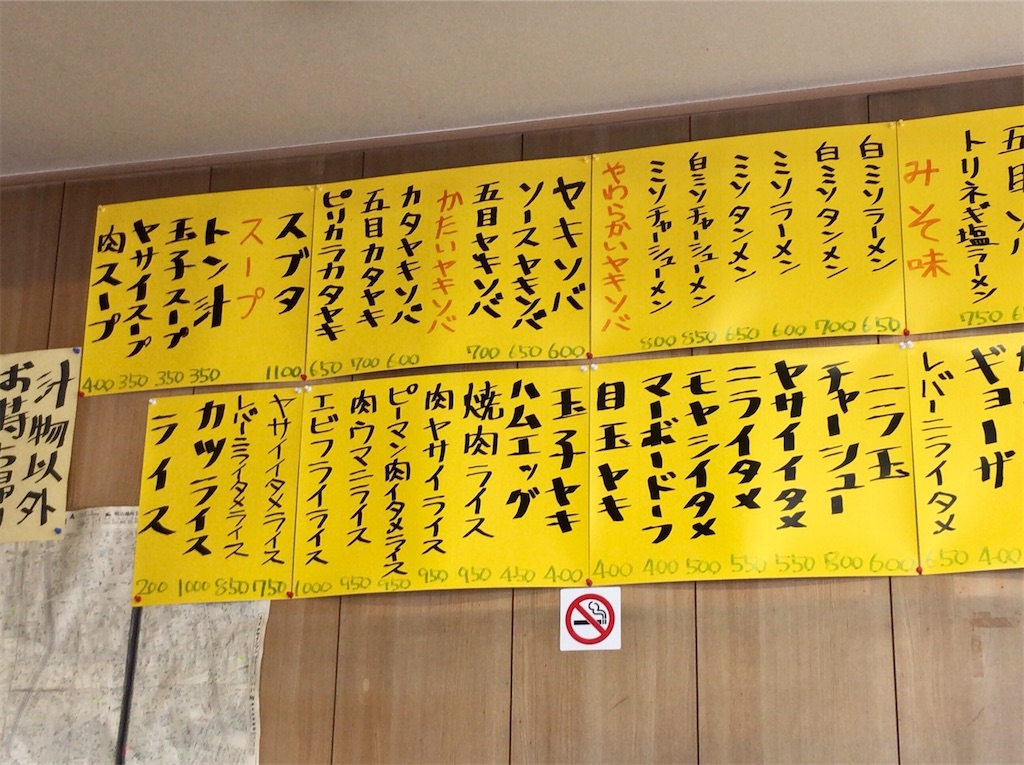 トリネギ塩ラーメン 750
みそ味
白ミソラーメン 650
白ミソタンメン 700
ミソラーメン 600
ミソタンメン 650
白ミソチャーシューメン 850
ミソチャーシューメン 800
やわらかいヤキソバ
ヤキソバ 600
ソースヤキソバ 650
五目ヤキソバ 700
かたいヤキソバ
カタヤキソバ 600
五目カタヤキ 700
ピリカラカタヤキ 650
スブタ 1100
スープ
トン汁 350
玉子スープ 350
ヤサイスープ 350
肉スープ 400
ギョーザ 400
レバーニライタメ 650
ニラ玉 600
チャーシュー 800
ヤサイイタメ 550
ニライタメ 550
モヤシイタメ 500
マーボードーフ 400
目玉ヤキ 400
玉子ヤキ 400
ハムエッグ 450
焼肉ライス 950
肉ヤサイライス 950
ピーマン肉イタメライス 950
肉ウマニライス 950
エビフライライス 1000
ヤサイイタメライス 750
レバーニライタメライス 850
カツライス 1000
ライス 200
汁物以外
お持ち帰り